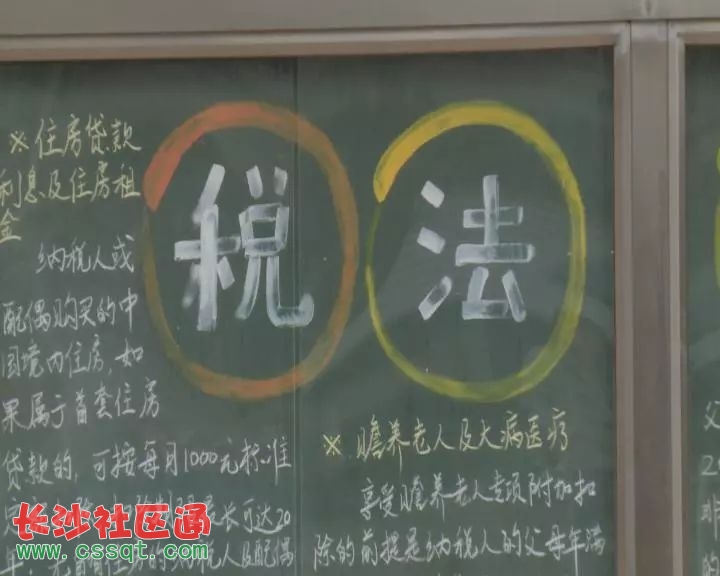 税法
※住房贷款
利息及住房租
金
纳税人或
配偶购买的中
国境内住房,如
果属于首套住房
贷款的,可按每月1000元标准
长可达20
年
税人及配偶
※赡养老人及大病医疗
享受赡养老人专项附加扣
除的前提是纳税人的父母年满
父
2
非
的
长沙社区通
www.cssqt.com